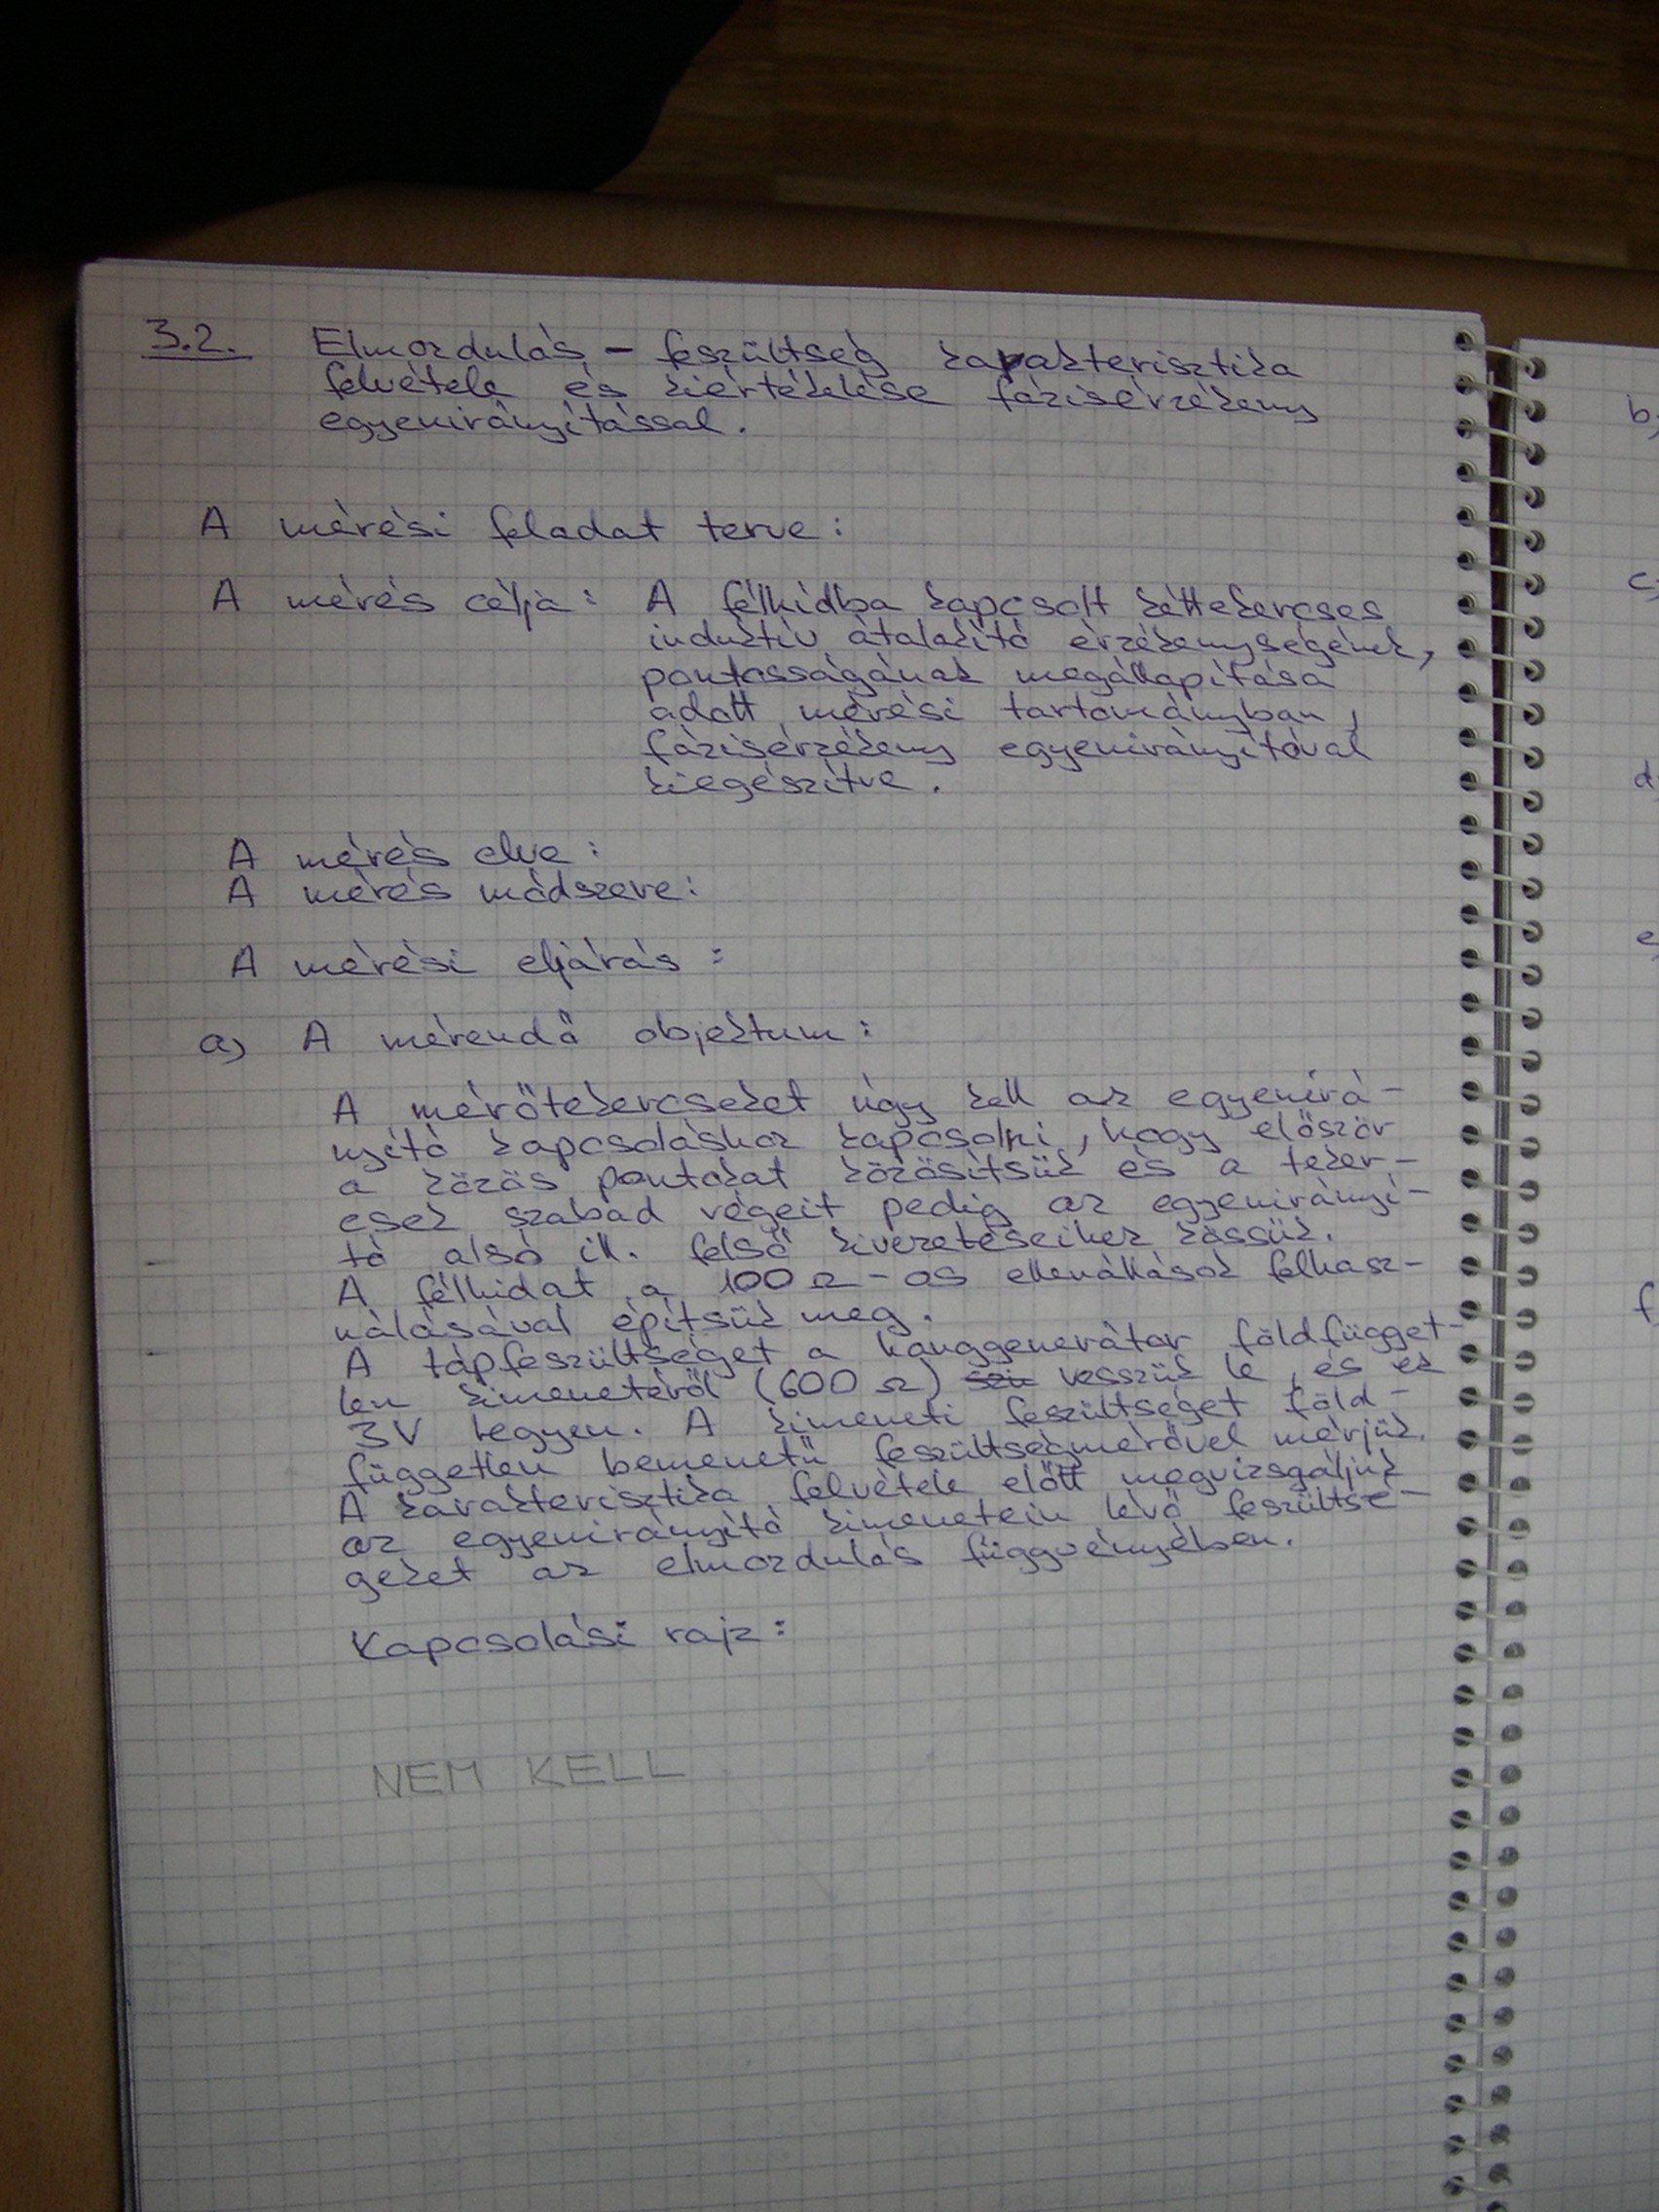 3.2. Elmozdulás - feszültség karakterisztika
felvétele és kiértékelése fázisérzékeny
egyenirányítással.
A mérési feladat terve:
A mérés célja: A félhídba kapcsolt kéttekercses
induktív átalakító érzékenységének,
pontosságának megállapítása
adott mérési tartományban,
fázisérzékeny egyenirányítóval
kiegészítve.
A mérés elve:
A mérés módszere:
A mérési eljárás:
a) A mérendő objektum:
A mérőtekercseket úgy kell az egyenirá-
nyító kapcsoláshoz kapcsolni, hogy először
a közös pontokat közösítsük és a teker-
csek szabad végeit pedig az egyenirányí-
tó alsó ill. felső kivezetéseihez kössük.
A félhidat a 100 Ω-os ellenállások felhasz-
nálásával építsük meg.
A tápfeszültséget a hanggenerátor földfügget-
len kimenetéről (600 Ω) vesszük le, és ez
3V legyen. A kimeneti feszültséget föld-
független bemenetű feszültségmérővel mérjük.
A karakterisztika felvétele előtt megvizsgáljuk
az egyenirányító kimenetein lévő feszültsé-
geket az elmozdulás függvényében.
Kapcsolási rajz:
NEM KELL
b)
c)
d)
e)
f)